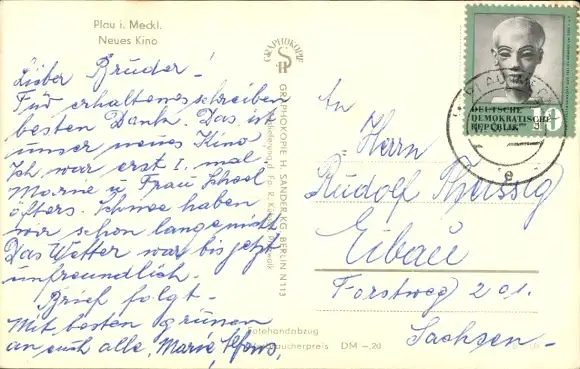 Plau i. Meckl.
Neues Kino
Lieber Bruder!
Für erhaltenes schreiben
besten Dank. Das ist
unser neues Kino
Ich war erst 1. mal
u Frau
öfters. Schnee haben
wir schon lange nicht
Das Wetter war bis jetzt
unfreundlich.
Brief folgt.
Mit besten grüssen
an euch alle, Marie, Alfons,
GRAPHOKOPIE
GRAPHOKOPIE H. SANDER KG. BERLIN N 113
Fotohandabzug
Verbraucherpreis DM -,20
DEUTSCHE
DEMOKRATISCHE
REPUBLIK
10
PLAU
e
An
Herrn
Rudolf
Eibau
Forstweg 201.
Sachsen